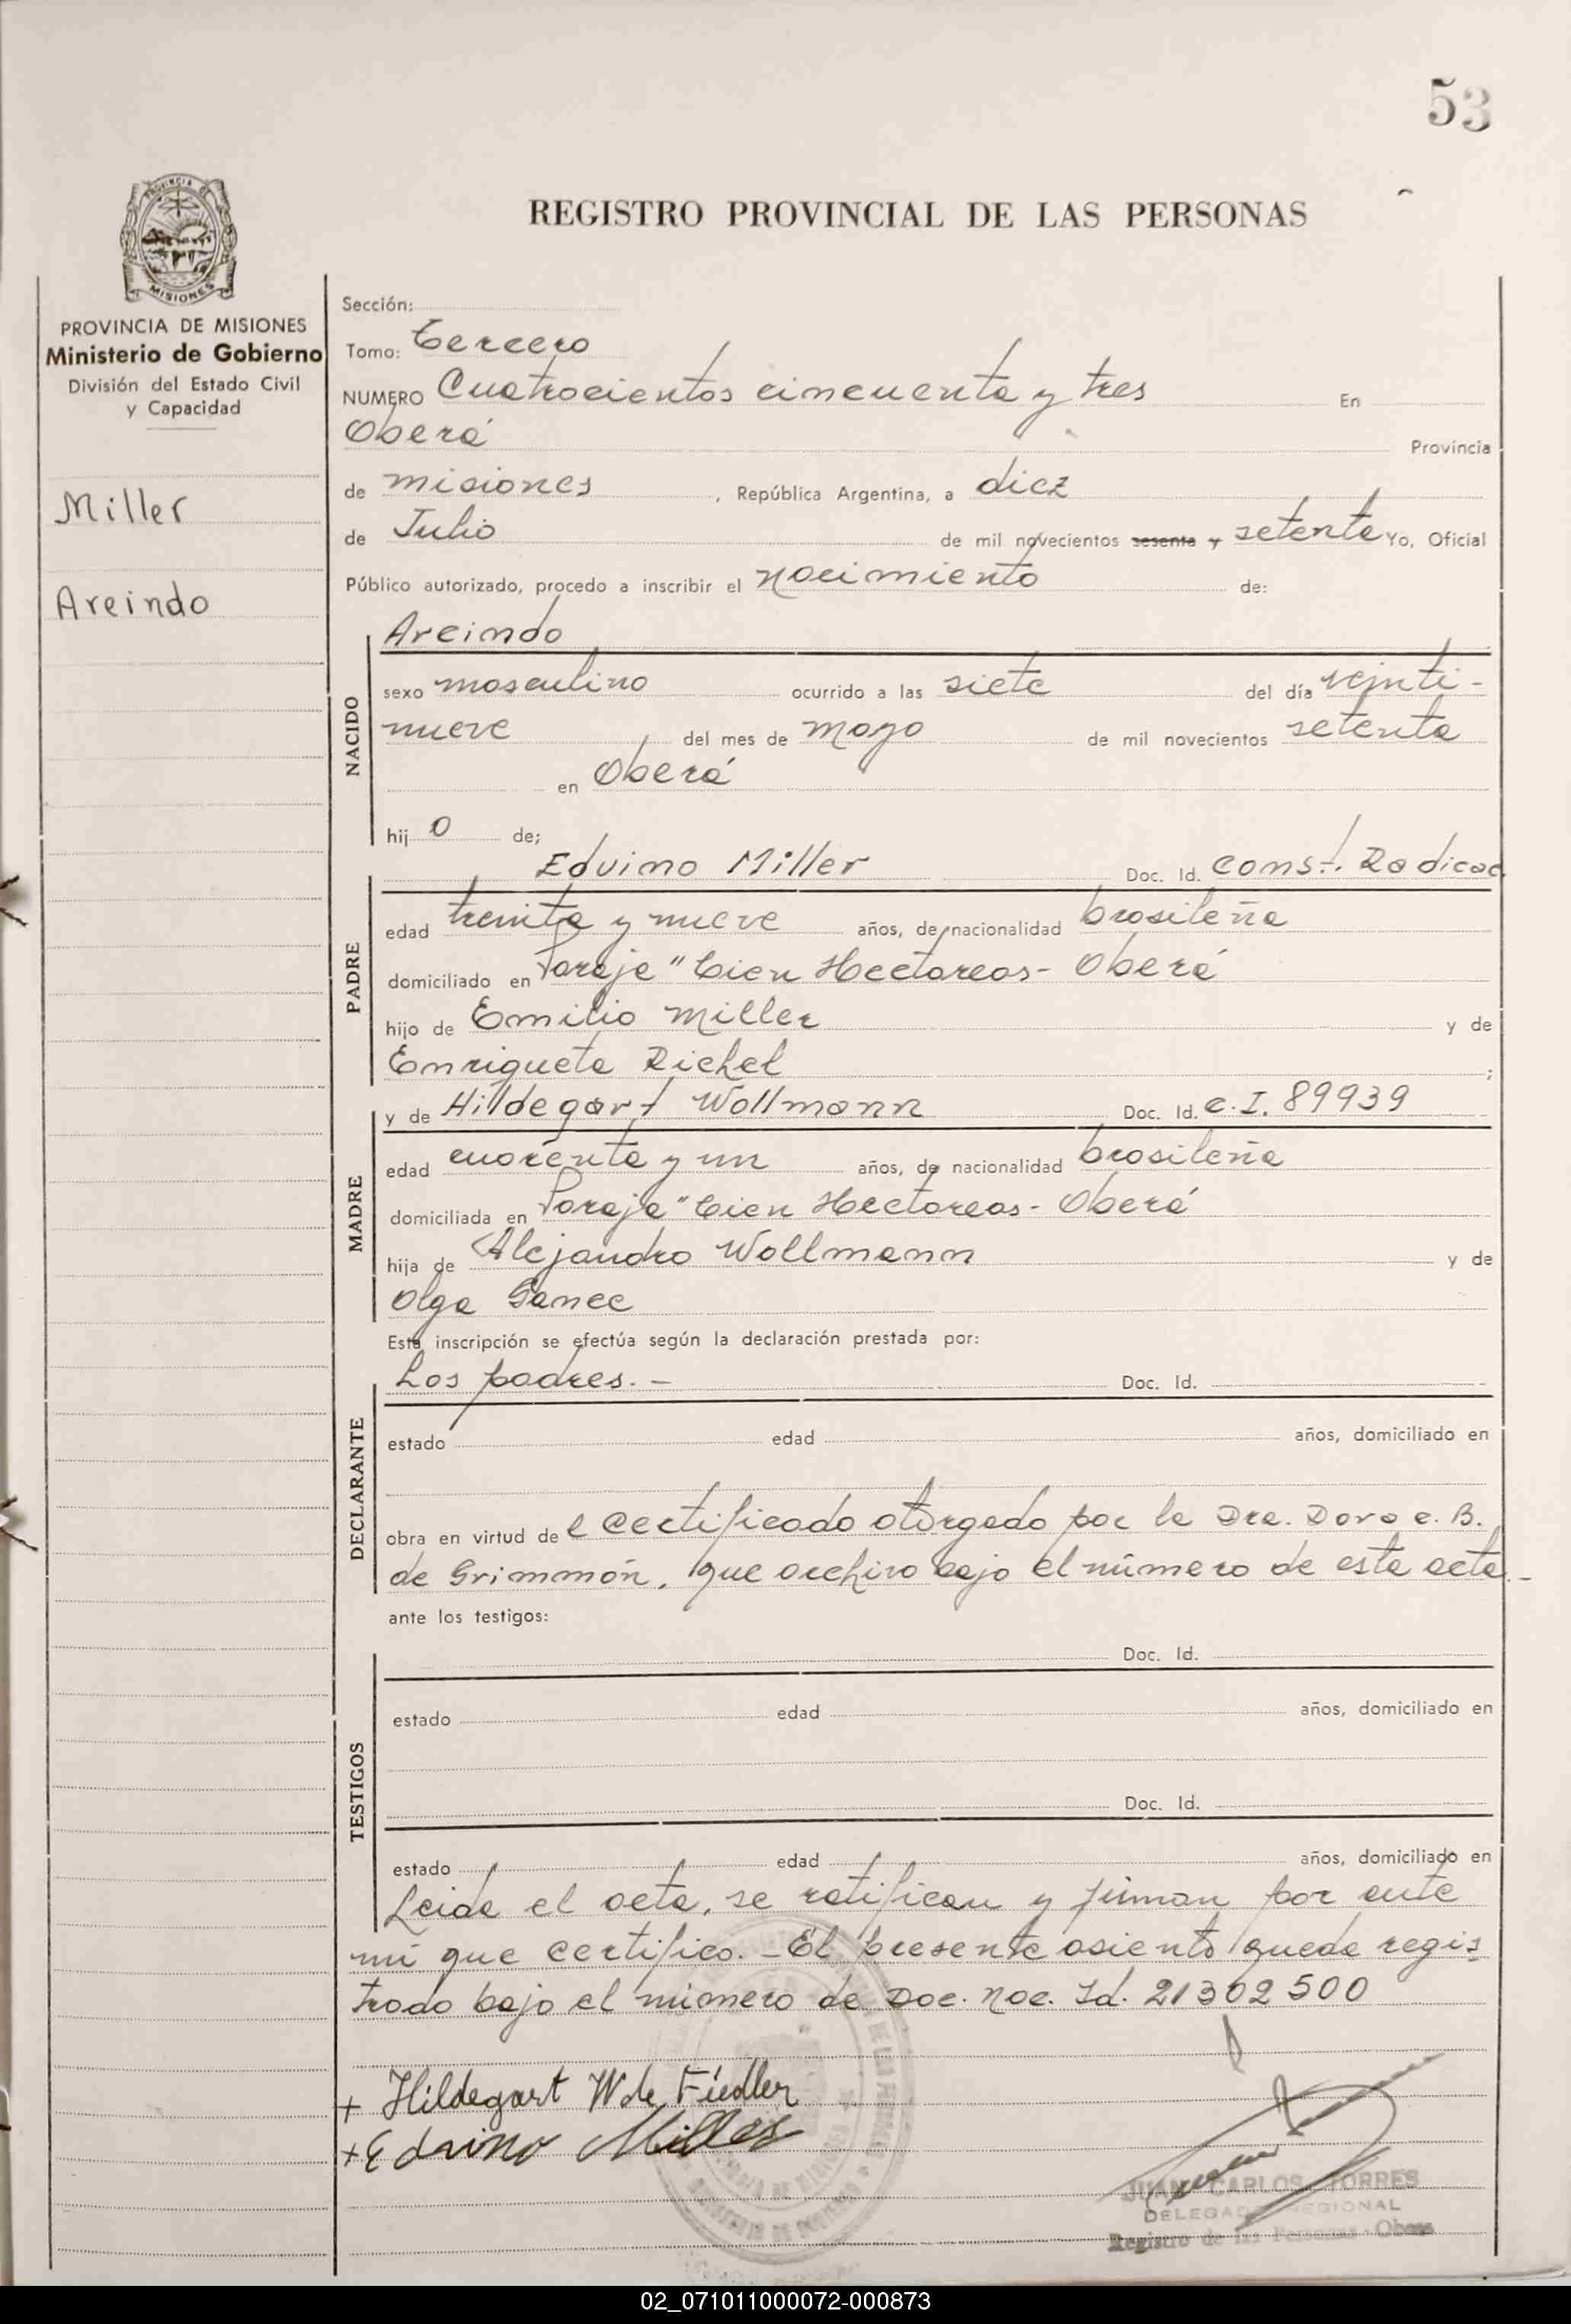 53
REGISTRO PROVINCIAL DE LAS PERSONAS
PROVINCIA DE
MISIONES
PROVINCIA DE MISIONES
Ministerio de Gobierno
División del Estado Civil
y Capacidad
Miller
Areindo
Sección:
Tomo: Tercero
NUMERO Cuatrocientos cincuenta y tres En
Oberá Provincia
de misiones , República Argentina, a diez
de Julio de mil novecientos sesenta y setenta Yo, Oficial
Público autorizado, procedo a inscribir el nacimiento de:
NACIDO
Areindo
sexo masculino ocurrido a las siete del día veinti-
nueve del mes de mayo de mil novecientos setenta
en Oberá
hij o de;
PADRE
Eduino Miller Doc. Id. Const. Radicac
edad treinta y nueve años, de nacionalidad brasileña
domiciliado en Paraje "Cien Hectareas - Oberá
hijo de Emilio Miller y de
Enriqueta Richel ;
MADRE
y de Hildegart Wollmann Doc. Id. C.I. 89939
edad cuarenta y un años, de nacionalidad brasileña
domiciliada en Paraje "Cien Hectareas - Oberá
hija de Alejandro Wollmann y de
Olga Ganec
Esta inscripción se efectúa según la declaración prestada por:
DECLARANTE
Los padres. - Doc. Id.
estado edad años, domiciliado en
obra en virtud de l certificado otorgado por la Dra. Dora C. B.
de Grimmón, que archivo bajo el número de esta acta.-
ante los testigos:
TESTIGOS
Doc. Id.
estado edad años, domiciliado en
Doc. Id.
estado edad años, domiciliado en
Leida el acta, se ratifican y firman por ante
mi que certifico. - El presente asiento queda regis
trado bajo el número de Doc. Nac. Id. 21302500
+ Hildegart W de Fiedler
+ Eduino Miller
JUAN CARLOS TORRES
DELEGADO REGIONAL
Registro de las Personas - Obera
02_071011000072-000873